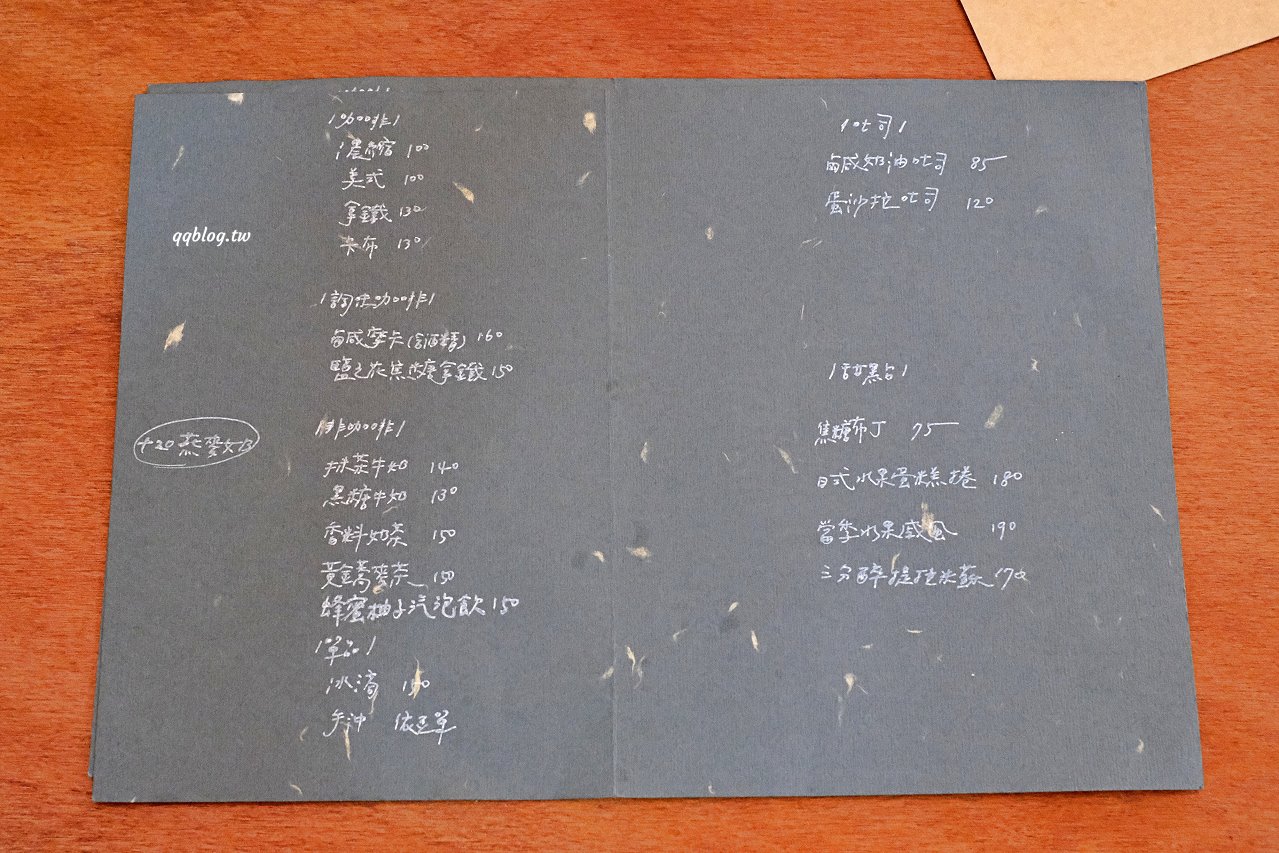 /咖啡/
濃縮 100
美式 100
拿鐵 130
卡布 130
/調味咖啡/
鹹摩卡(含酒精) 160
鹽之花焦糖拿鐵 150
+20 燕麥奶
/非咖啡/
抹茶牛奶 140
黑糖牛奶 130
香料奶茶 150
黃金蕎麥茶 150
蜂蜜柚子汽泡飲 150
/單品/
冰滴
手沖 依選單
/吐司/
鹹奶油吐司 85
蛋沙拉吐司 120
/甜點/
焦糖布丁 75
日式水果蛋糕捲 180
當季水果戚風 190
三分醉提拉米蘇 170
qqblog.tw